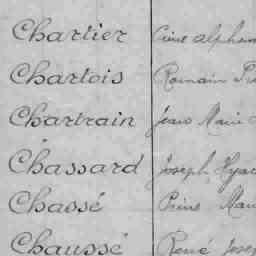 Chartier
Chartois Romain
Chartrain Jean Marie
Chassard Joseph Hyac
Chassé Pierre Mar
Chaussé René Josep